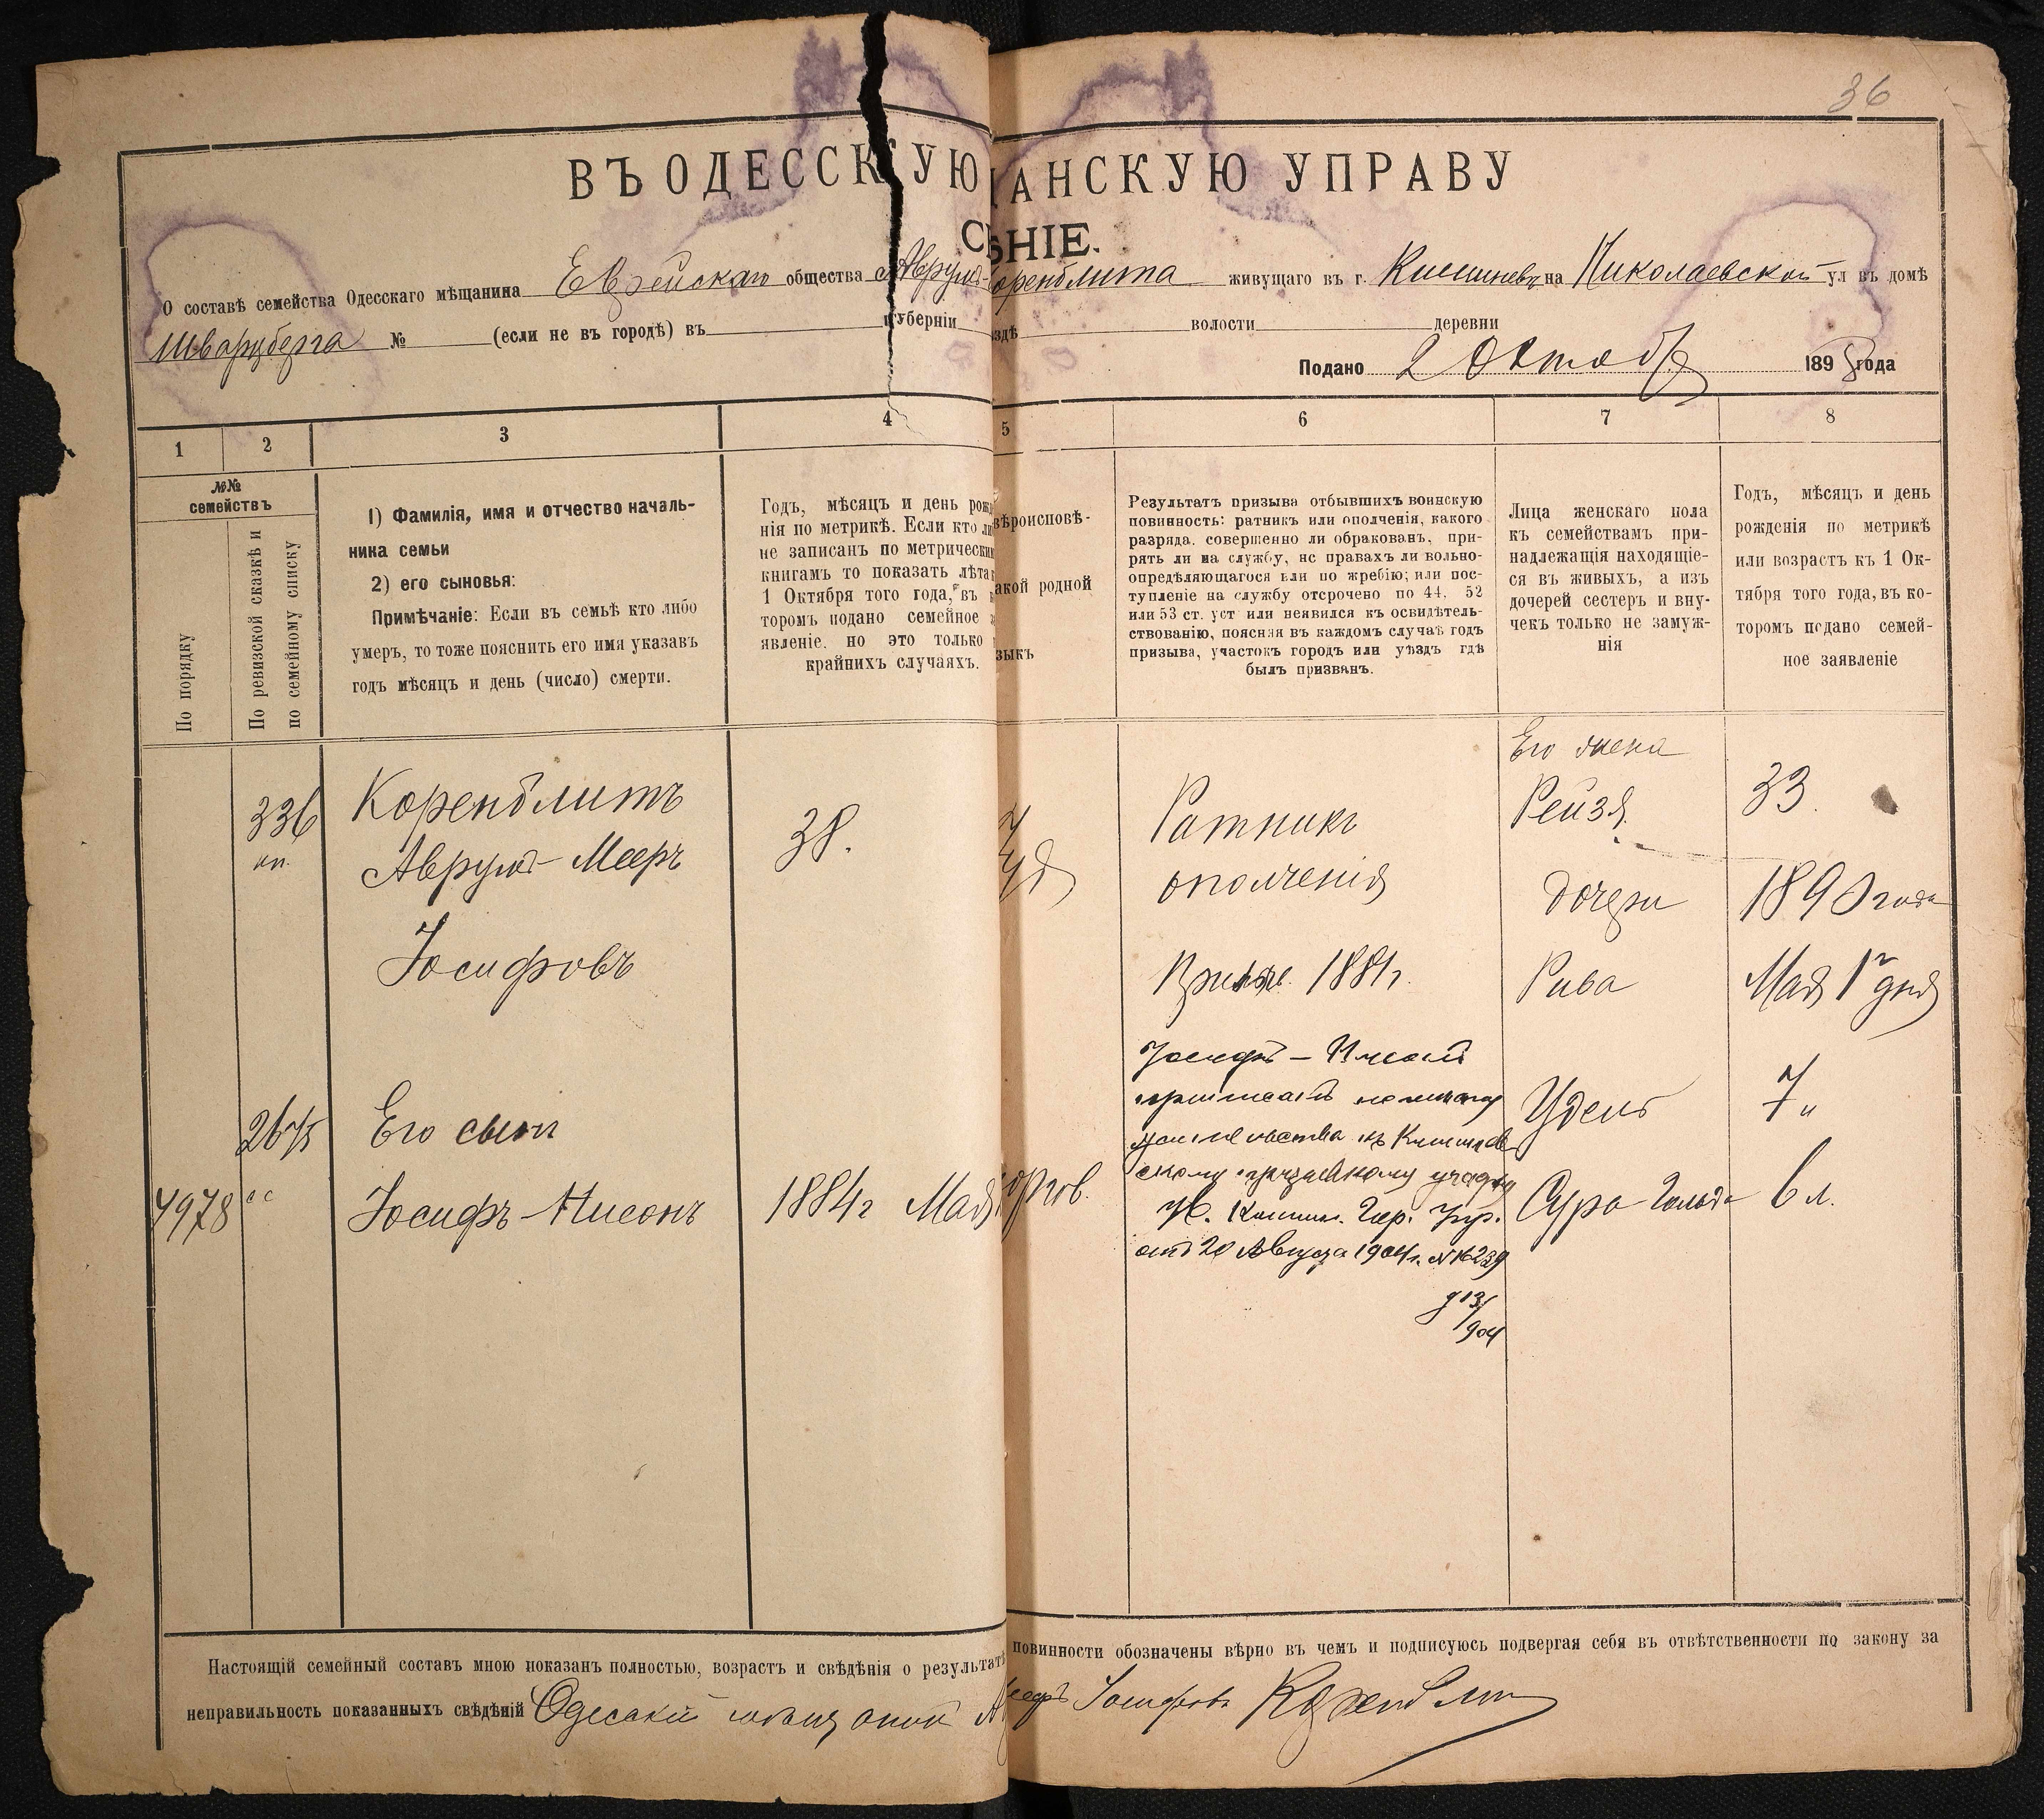 36
ВЪ ОДЕССКУЮ АНСКУЮ УПРАВУ
ѢНІЕ.
О составѣ семейства Одесскаго мѣщанина Еврейскаго общества Аврума Коренблита живущаго въ г. Кишиневѣ на Николаевской ул въ домѣ
Шварцберга № (если не въ городѣ) въ губерніи ѣздѣ волости деревни
Подано 2 Октября 1898 года
1 2 3 4 5 6 7 8
№№ семействъ
По порядку
По ревизской сказкѣ и по семейному списку
1) Фамилія, имя и отчество началь-
ника семьи
2) его сыновья:
Примѣчаніе: Если въ семьѣ кто либо
умеръ, то тоже пояснить его имя указавъ
годъ мѣсяцъ и день (число) смерти.
Годъ, мѣсяцъ и день рожд
нія по метрикѣ. Если кто ли
не записанъ по метрически
книгамъ то показать лѣта
1 Октября того года, въ к
торомъ подано семейное з
явленіе. но это только
крайнихъ случаяхъ.
вѣроисповѣ-
акой родной
зыкъ
Результатъ призыва отбывшихъ воинскую
повинность: ратникъ или ополченія, какого
разряда. совершенно ли обракованъ, при-
рять ли на службу, нс правахъ ли вольно-
опредѣляющагося или по жребію; или пос-
тупленіе на службу отсрочено по 44, 52
или 53 ст. уст или неявился къ освидѣтель-
ствованію, поясняя въ каждомъ случаѣ годъ
призыва, участокъ городъ или уѣздъ гдѣ
былъ призванъ.
Лица женскаго пола
къ семействамъ при-
надлежащія находящіе-
ся въ живыхъ, а изъ
дочерей сестеръ и вну-
чекъ только не замуж-
нія
Годъ, мѣсяцъ и день
рожденія по метрикѣ
или возрастъ къ 1 Ок-
тября того года, въ ко-
торомъ подано семей-
ное заявленіе
336
Коренблитъ
Аврумъ-Мееръ
Іосифовъ
38.
Ратникъ
ополченія
1881г.
Его жена
Рейзя
33.
Дочери
1890 года
Рива
Мая 1го дня
Удель
7 "
Сура-Гольда
6 л.
2675
Его сынъ
4978
Іосифъ-Нисонъ
1884г Мая
Іосифъ-Нисонъ
приписанъ по мѣсту
жительства къ Кишинев
скому призывному участку
от 20 Августа 1904г. № 16239
913/904
Настоящій семейный составъ мною показанъ полностью, возрастъ и свѣдѣнія о результатѣ повинности обозначены вѣрно въ чемъ и подписуюсь подвергая себя въ отвѣтственности по закону за
неправильность показанныхъ свѣдѣній Одесскій мѣщанинъ Іосифовъ Коренблит